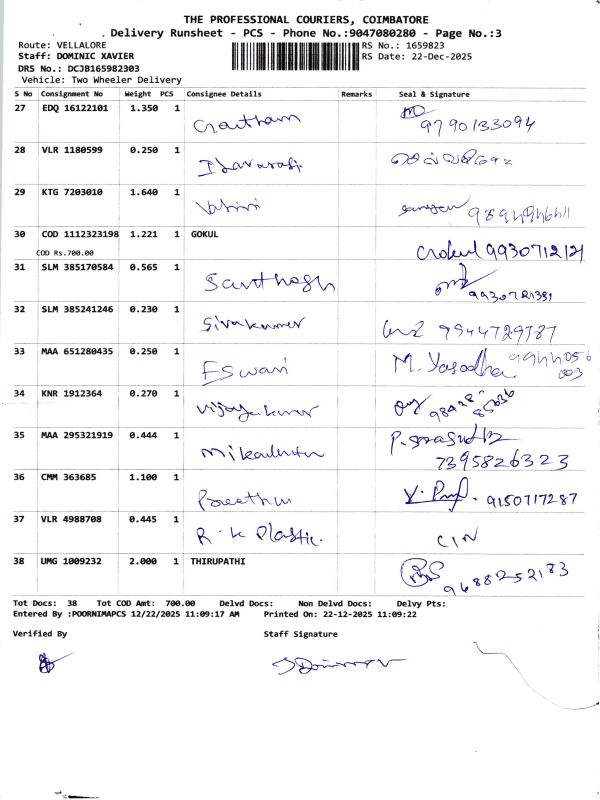 THE PROFESSIONAL COURIERS, COIMBATORE
Delivery Runsheet - PCS - Phone No.:9047080280 - Page No.:3
Route: VELLALORE RS No.: 1659823
Staff: DOMINIC XAVIER RS Date: 22-Dec-2025
DRS No.: DCJB165982303
Vehicle: Two Wheeler Delivery
S No Consignment No Weight PCS Consignee Details Remarks Seal & Signature
27 EDQ 16122101 1.350 1 Goutham
9790133094
28 VLR 1180599 0.250 1
29 KTG 7203010 1.640 1
30 COD 1112323198 1.221 1 GOKUL
COD Rs.700.00 Gokul 9930712121
31 SLM 385170584 0.565 1 Santhosh
9930721381
32 SLM 385241246 0.230 1 Sivakumar 9944729787
33 MAA 651280435 0.250 1 Eswari M. Yasodha 9944056
003
34 KNR 1912364 0.270 1 Vijayakumar
35 MAA 295321919 0.444 1
7395826323
36 CMM 363685 1.100 1 Preethi 9150717287
37 VLR 4988708 0.445 1 R. K Plastic. CIN
38 UMG 1009232 2.000 1 THIRUPATHI 9688252183
Tot Docs: 38 Tot COD Amt: 700.00 Delvd Docs: Non Delvd Docs: Delvy Pts:
Entered By :POORNIMAPCS 12/22/2025 11:09:17 AM Printed On: 22-12-2025 11:09:22
Verified By Staff Signature